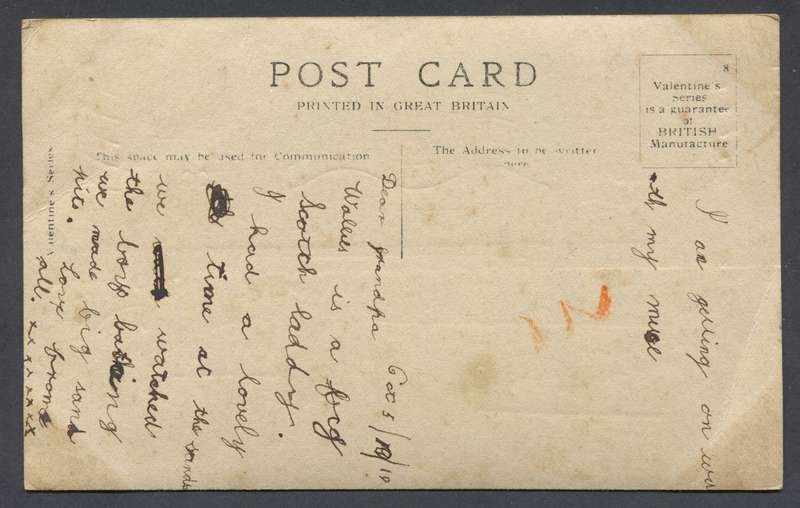 POST CARD
PRINTED IN GREAT BRITAIN
8
Valentine's
Series
is a guarantee
of
BRITISH
Manufacture
This space may be used for Communication
The Address to be written
here
Valentine's Series
Dear grandpa Oct 5/19/18
Wallies is a
Scotch laddy.
I had a lovely
time at the sands
we watched
the boys bathing
we made big sand
pits. Love from
all. xxxxxxx
I am getting on wi
th my